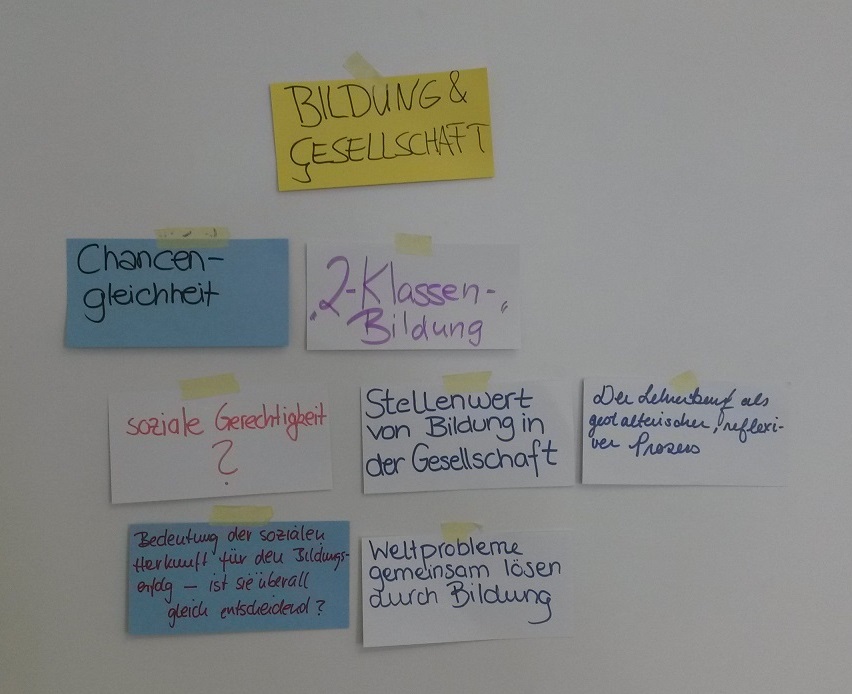 BILDUNG &
GESELLSCHAFT
Chancen-
gleichheit
„2-Klassen-
Bildung“
soziale Gerechtigkeit
?
Stellenwert
von Bildung in
der Gesellschaft
Der Lehrerberuf als
gestalterischer, reflexi-
ver Prozess
Bedeutung der sozialen
Herkunft für den Bildungs-
erfolg – ist sie überall
gleich entscheidend?
Weltprobleme
gemeinsam lösen
durch Bildung